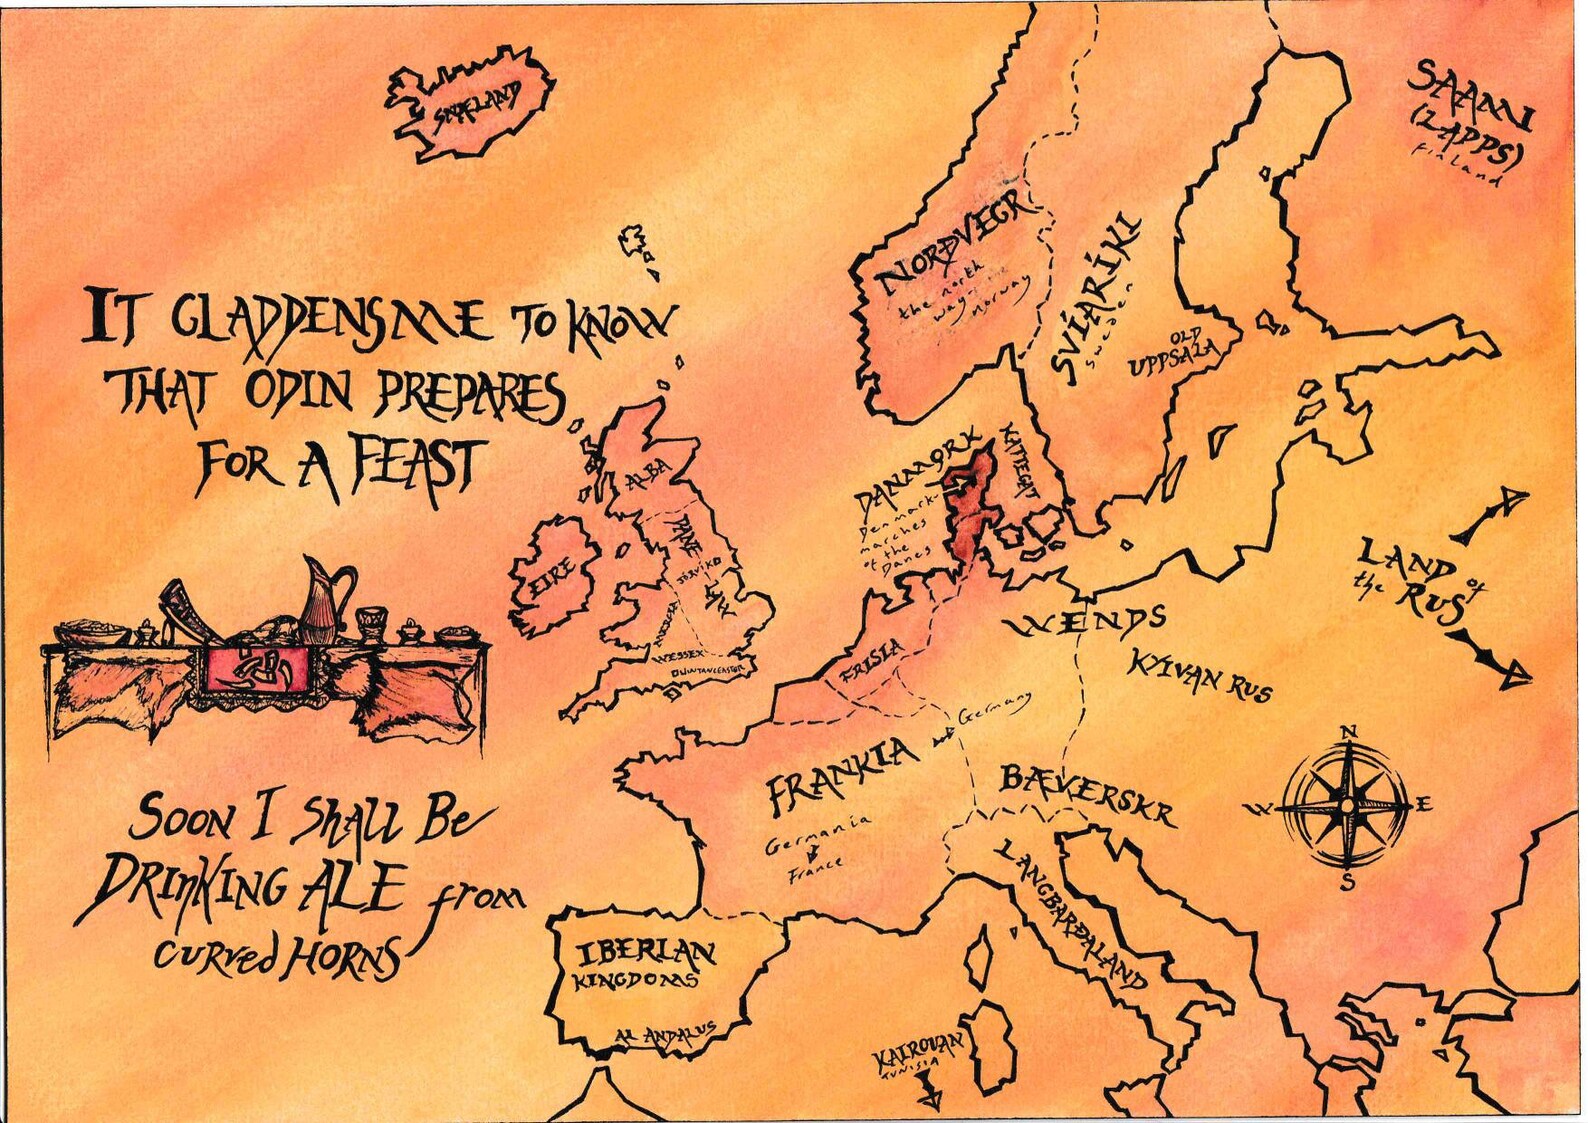 SNÆLAND
SAAMI
(LAPPS)
Finland
NORÐVEGR
the north
way - the
norway
SVÍARÍKI
Sweden
OLD
UPPSALA
IT GLADDENS ME TO KNOW
THAT ODIN PREPARES
FOR A FEAST
DANMǪRK
Denmark -
marches
of the
Danes
KATTEGAT
ALBA
DANE
LAW
JÓRVÍK
EIRE
MERCIA
WESSEX
WINTANCEASTER
LAND of
the RUS
WENDS
KYIVAN RUS
FRISIA
FRANKIA
Germany
Germania
&
France
BÆVERSKR
LANGBARÐALAND
N
W
E
S
SOON I SHALL BE
DRINKING ALE from
CURVED HORNS
IBERIAN
KINGDOMS
AL ANDALUS
KAIROUAN
TUNISIA